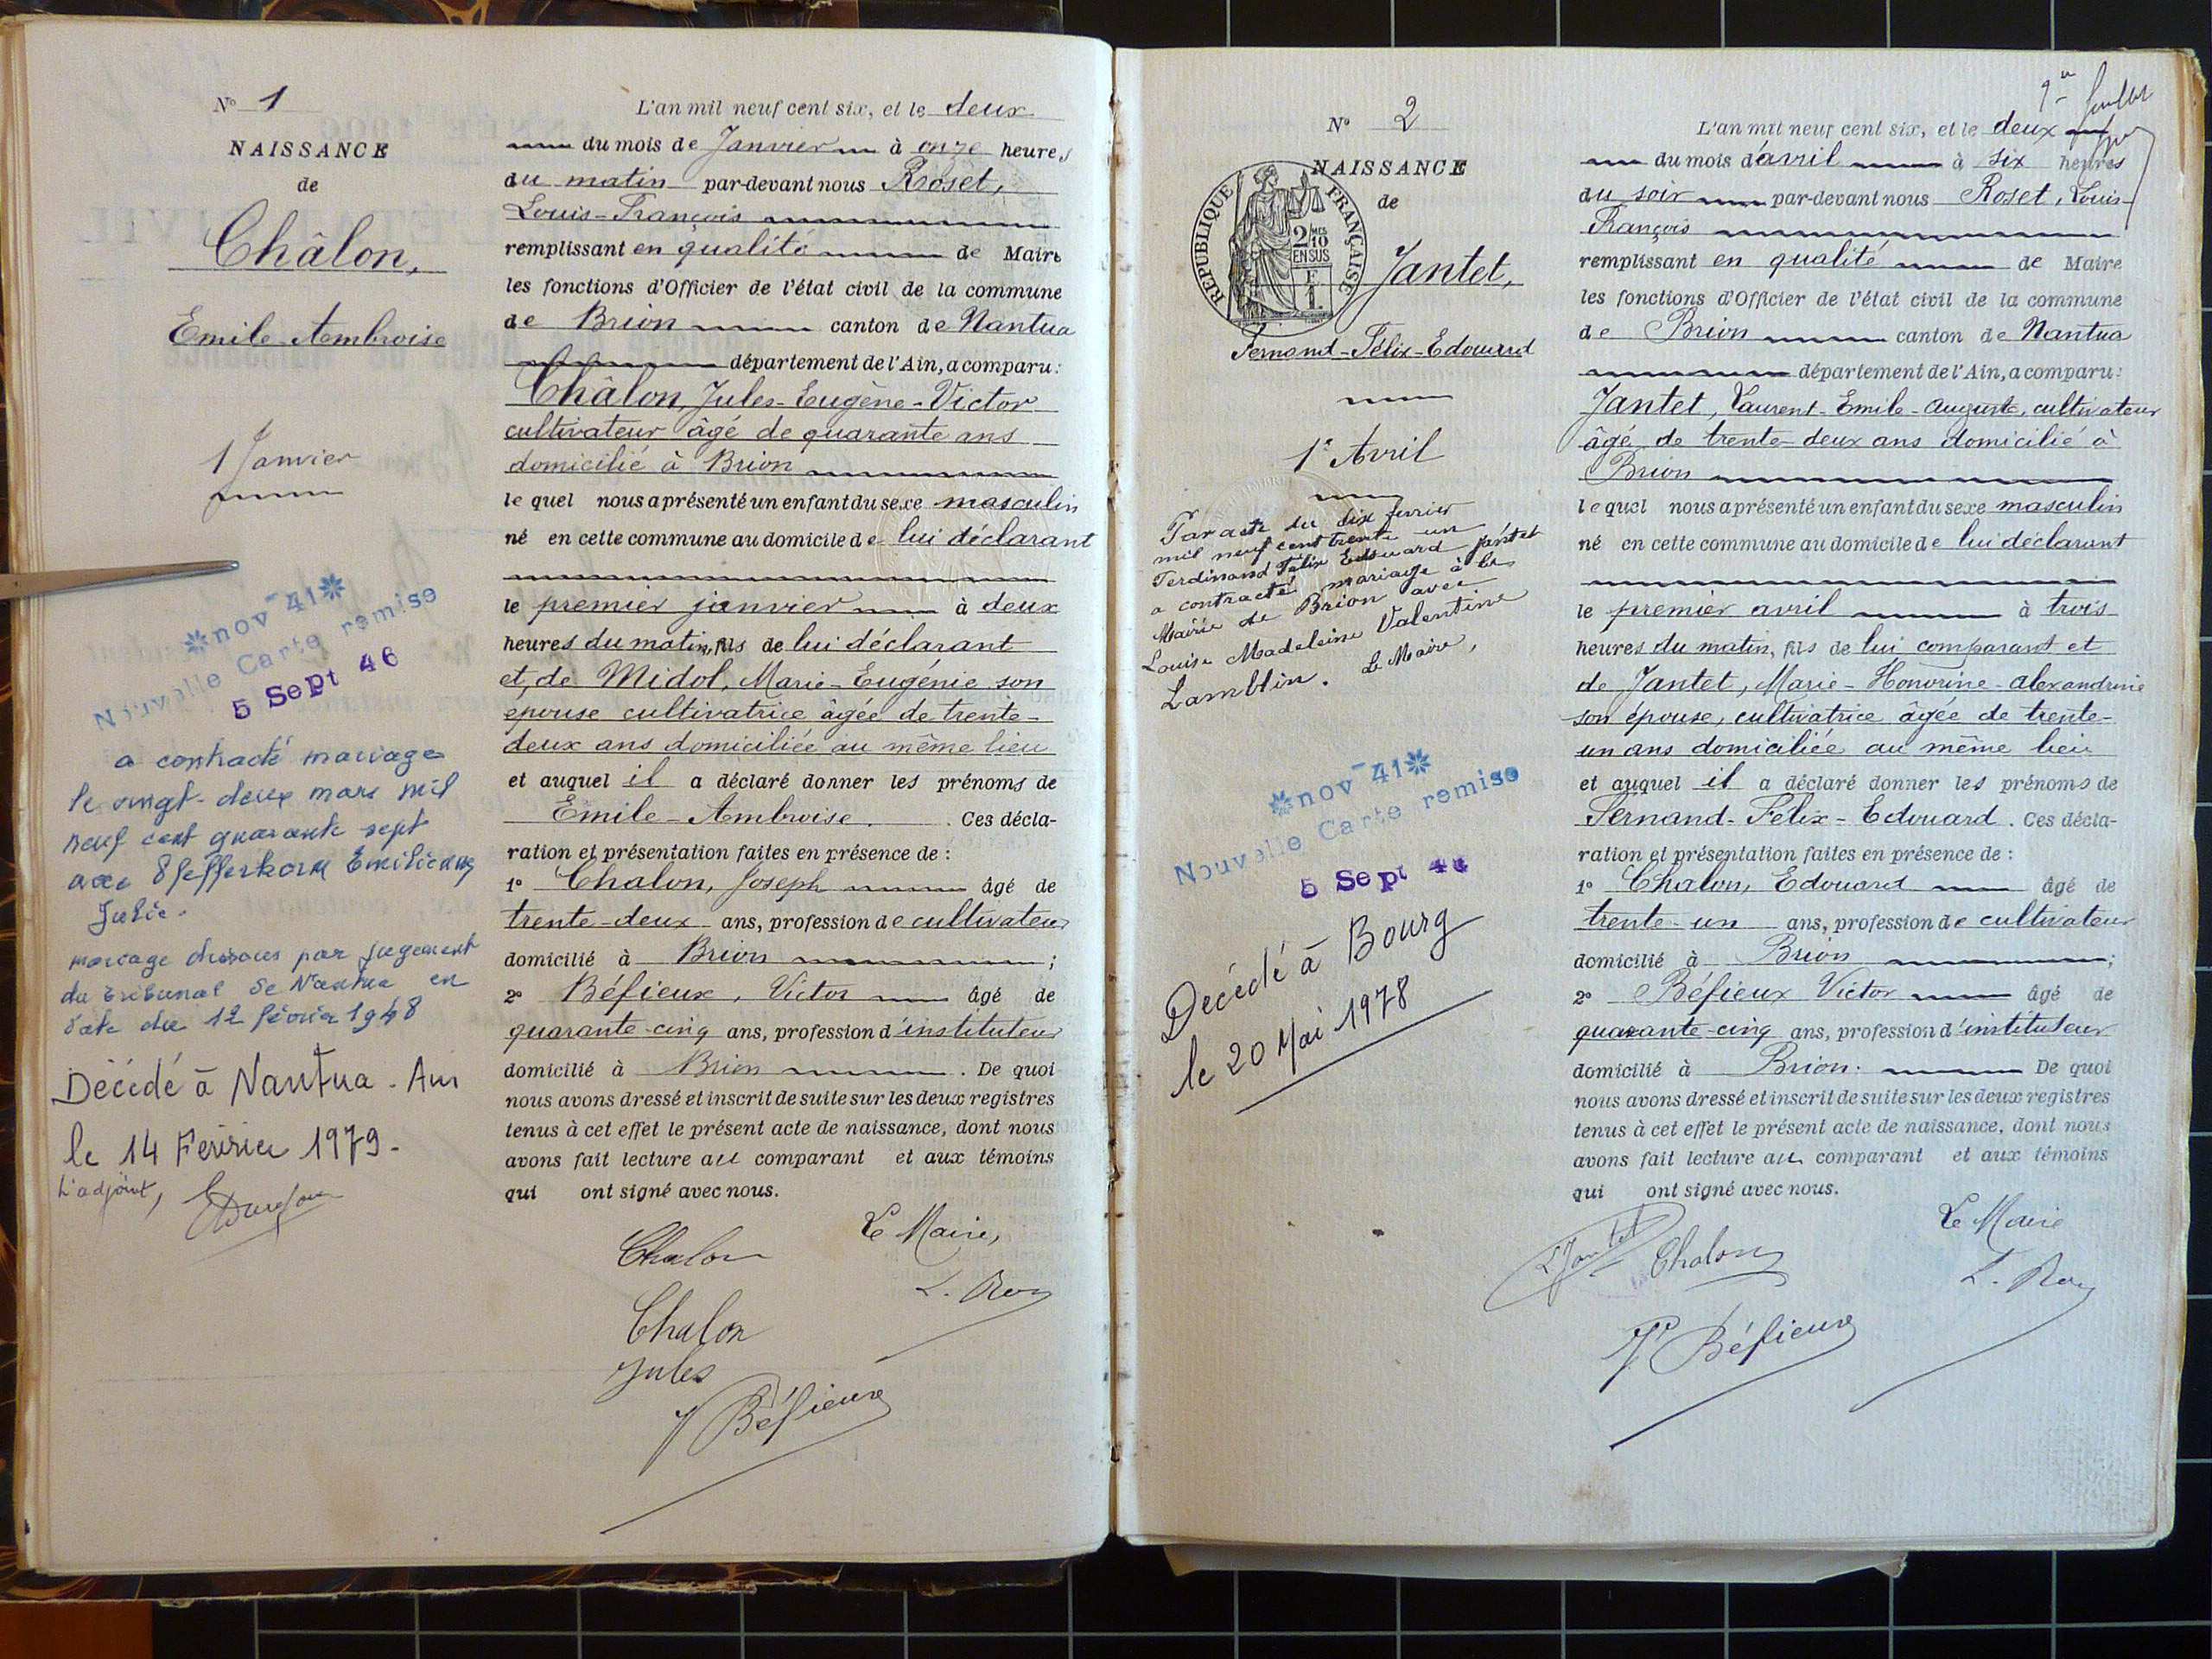 N° 1
NAISSANCE
de
Châlon,
Emile-Ambroise
1 Janvier
*nov 41*
Nouvelle Carte remise
5 Sept 46
a contracté mariage
le vingt-deux mars mil
neuf cent quarante sept
avec Emilienne
Julie.
mariage dissous par jugement
du tribunal de Nantua en
date du 12 février 1948
Décédé à Nantua - Ain
le 14 Février 1979-
L'adjoint,
L'an mil neuf cent six, et le deux
du mois de Janvier à onze heures
du matin par-devant nous Roset,
Louis-François
remplissant en qualité de Maire
les fonctions d'Officier de l'état civil de la commune
de Brion canton de Nantua
département de l'Ain, a comparu:
Châlon, Jules-Eugène-Victor
cultivateur âgé de quarante ans
domicilié à Brion
lequel nous a présenté un enfant du sexe masculin
né en cette commune au domicile de lui déclarant
le premier janvier à deux
heures du matin, fils de lui déclarant
et de Midol, Marie-Eugénie son
épouse cultivatrice âgée de trente-
deux ans domiciliée au même lieu
et auquel il a déclaré donner les prénoms de
Emile-Ambroise. Ces décla-
ration et présentation faites en présence de :
1° Chalon, Joseph âgé de
trente-deux ans, profession de cultivateur
domicilié à Brion ;
2° Béfieux, Victor âgé de
quarante-cinq ans, profession d'instituteur
domicilié à Brion . De quoi
nous avons dressé et inscrit de suite sur les deux registres
tenus à cet effet le présent acte de naissance, dont nous
avons fait lecture au comparant et aux témoins
qui ont signé avec nous.
Le Maire,
Chalon
L. Roset
Chalon
Jules
V Béfieux
N° 2
NAISSANCE
de
REPUBLIQUE FRANÇAISE
2/10 MES
EN SUS
Jantet,
Fernand-Félix-Edouard
1er Avril
Par acte du dix février
mil neuf cent trente un
Ferdinand Félix Edouard Jantet
a contracté mariage à la
Mairie de Brion avec
Louise Madeleine Valentine
Lamblin. Le Maire,
*nov 41*
Nouvelle Carte remise
5 Sept 46
Décédé à Bourg
le 20 Mai 1978
L'an mil neuf cent six, et le deux
du mois d'avril à six heures
du soir par-devant nous Roset, Louis-
François
remplissant en qualité de Maire
les fonctions d'Officier de l'état civil de la commune
de Brion canton de Nantua
département de l'Ain, a comparu:
Jantet, Laurent-Emile-Auguste, cultivateur
âgé de trente-deux ans domicilié à
Brion
lequel nous a présenté un enfant du sexe masculin
né en cette commune au domicile de lui déclarant
le premier avril à trois
heures du matin, fils de lui comparant et
de Jantet, Marie-Honorine-Alexandrine
son épouse, cultivatrice âgée de trente-
un ans domiciliée au même lieu
et auquel il a déclaré donner les prénoms de
Fernand-Félix-Edouard. Ces décla-
ration et présentation faites en présence de :
1° Chalon, Edouard âgé de
trente-un ans, profession de cultivateur
domicilié à Brion ;
2° Béfieux Victor âgé de
quarante-cinq ans, profession d'instituteur
domicilié à Brion. De quoi
nous avons dressé et inscrit de suite sur les deux registres
tenus à cet effet le présent acte de naissance, dont nous
avons fait lecture au comparant et aux témoins
qui ont signé avec nous.
Le Maire
Jantet Chalon
L. Roset
V Béfieux